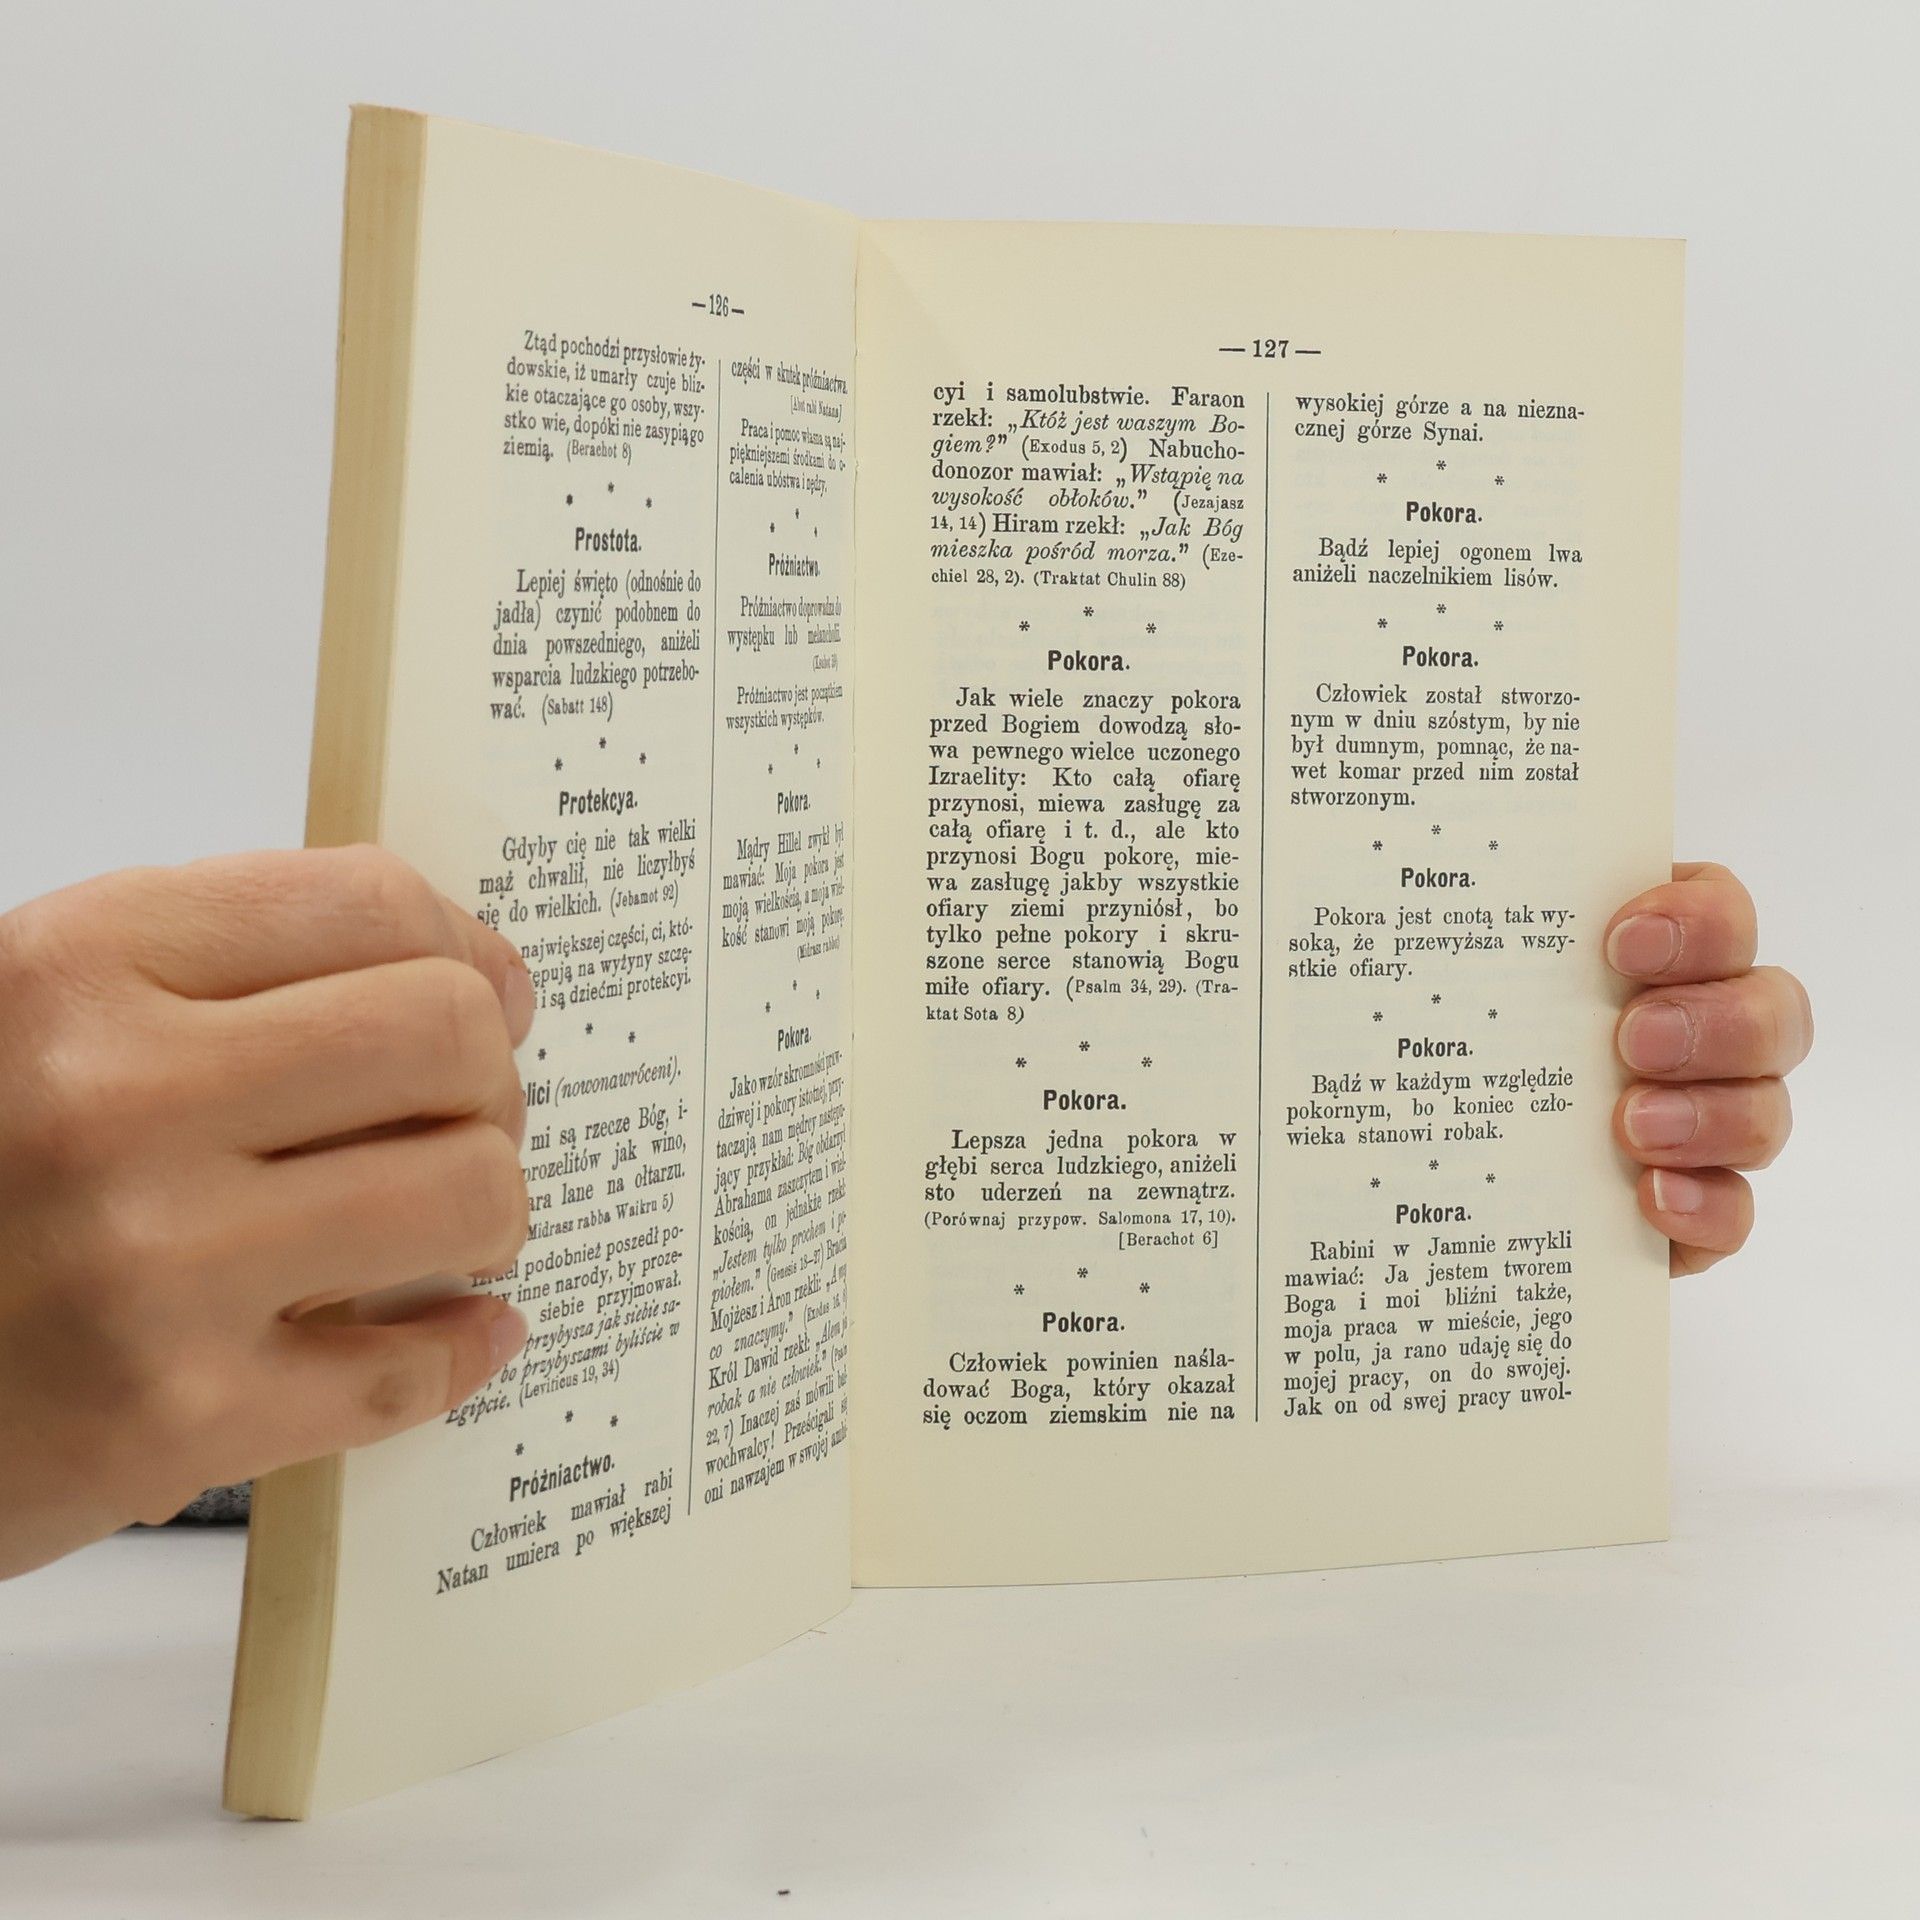 —126—
Ztąd pochodzi przysłowie ży-
dowskie, iż umarły czuje bliz-
kie otaczające go osoby, wszy-
stko wie, dopóki nie zasypią go
ziemią. (Berachot 8)
* * *
Prostota.
Lepiej święto (odnośnie do
jadła) czynić podobnem do
dnia powszedniego, aniżeli
wsparcia ludzkiego potrzebo-
wać. (Sabatt 148)
* * *
Protekcya.
Gdyby cię nie tak wielki
mąż chwalił, nie liczyłbyś
się do wielkich. (Jebamot 92)
największej części, ci, któ-
tępują na wyżyny szczę-
i są dziećmi protekcyi.
* * *
lici (nowonawróceni).
mi są rzecze Bóg, i-
prozelitów jak wino,
ara lane na ołtarzu.
Midrasz rabba Waikru 5)
podobnież poszedł po-
inne narody, by proze-
siebie przyjmował.
przybysza jak siebie sa-
bo przybyszami byliście w
Egipcie. (Leviticus 19, 34)
* * *
Próżniactwo.
Człowiek mawiał rabi
Natan umiera po większej
części w skutek próżniactwa.
[Abot rabi Natana]
Praca i pomoc własna są naj-
piękniejszemi środkami do o-
calenia ubóstwa i nędzy.
* * *
Próżniactwo.
Próżniactwo doprowadza do
występku lub melancholii.
Próżniactwo jest początkiem
wszystkich występków.
* * *
Pokora.
Mądry Hillel zwykł był
mawiać: Moja pokora jest
moją wielkością, a moja wiel-
kość stanowi moją pokorę.
(Midrasz rabbot)
* * *
Pokora.
Jako wzór skromności praw-
dziwej i pokory istotnej, przy-
taczają nam mędrcy następu-
jący przykład: Bóg obdarzył
Abrahama zaszczytem i wiel-
kością, on jednakże rzekł
„Jestem tylko prochem i po-
piołem.” (Genesis 18–27) Bracia
Mojżesz i Aron rzekli: „A my
co znaczymy.” (Exodus 16,
Król Dawid rzekł: „Alem ja
robak a nie człowiek.” (Psalm
22, 7) Inaczej zaś mówili bał-
wochwalcy! Prześcigali się
oni nawzajem w swojej ambi-
—127—
cyi i samolubstwie. Faraon
rzekł: „Któż jest waszym Bo-
giem?” (Exodus 5, 2) Nabucho-
donozor mawiał: „Wstąpię na
wysokość obłoków.” (Jezajasz
14, 14) Hiram rzekł: „Jak Bóg
mieszka pośród morza.” (Eze-
chiel 28, 2). (Traktat Chulin 88)
* * *
Pokora.
Jak wiele znaczy pokora
przed Bogiem dowodzą sło-
wa pewnego wielce uczonego
Izraelity: Kto całą ofiarę
przynosi, miewa zasługę za
całą ofiarę i t. d., ale kto
przynosi Bogu pokorę, mie-
wa zasługę jakby wszystkie
ofiary ziemi przyniósł, bo
tylko pełne pokory i skru-
szone serce stanowią Bogu
miłe ofiary. (Psalm 34, 29). (Tra-
ktat Sota 8)
* * *
Pokora.
Lepsza jedna pokora w
głębi serca ludzkiego, aniżeli
sto uderzeń na zewnątrz.
(Porównaj przypow. Salomona 17, 10).
[Berachot 6]
* * *
Pokora.
Człowiek powinien naśla-
dować Boga, który okazał
się oczom ziemskim nie na
wysokiej górze a na niezna-
cznej górze Synai.
* * *
Pokora.
Bądź lepiej ogonem lwa
aniżeli naczelnikiem lisów.
* * *
Pokora.
Człowiek został stworzo-
nym w dniu szóstym, by nie
był dumnym, pomnąc, że na-
wet komar przed nim został
stworzonym.
* * *
Pokora.
Pokora jest cnotą tak wy-
soką, że przewyższa wszy-
stkie ofiary.
* * *
Pokora.
Bądź w każdym względzie
pokornym, bo koniec czło-
wieka stanowi robak.
* * *
Pokora.
Rabini w Jamnie zwykli
mawiać: Ja jestem tworem
Boga i moi bliźni także,
moja praca w mieście, jego
w polu, ja rano udaję się do
mojej pracy, on do swojej.
Jak on od swej pracy uwol-